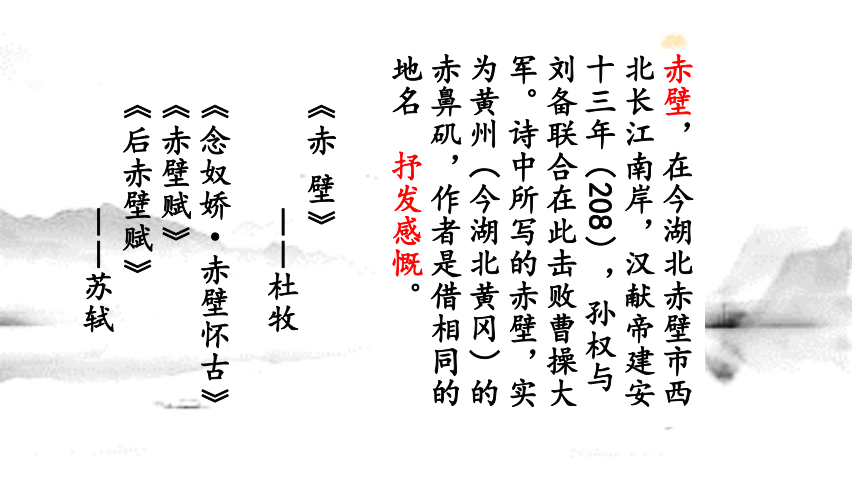 赤壁，在今湖北赤壁市西
北长江南岸，汉献帝建安
十三年（208），孙权与
刘备联合在此击败曹操大
军。诗中所写的赤壁，实
为黄州（今湖北黄冈）的
赤鼻矶，作者是借相同的
地名 抒发感慨。
《赤 壁》
——杜牧
《念奴娇·赤壁怀古》
《赤壁赋》
《后赤壁赋》
——苏轼